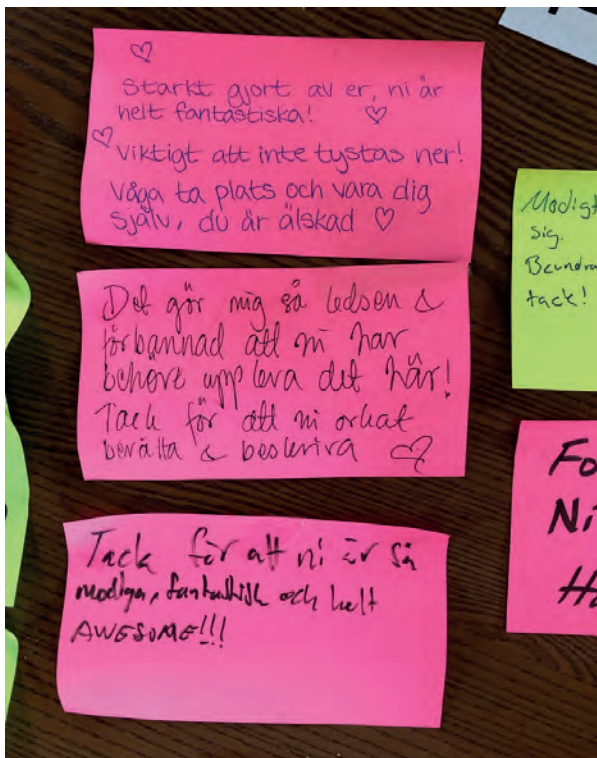 Starkt gjort av er, ni är
helt fantastiska!
Viktigt att inte tystas ner!
Våga ta plats och vara dig
själv, du är älskad
Det gör mig så ledsen &
förbannad att ni har
behövt uppleva det här!
Tack för att ni orkat
berätta & beskriva
Tack för att ni är så
modiga, fantastisk och helt
AWESOME!!!
Modigt
sig.
Beundra
tack!
Fo
Ni
Ha